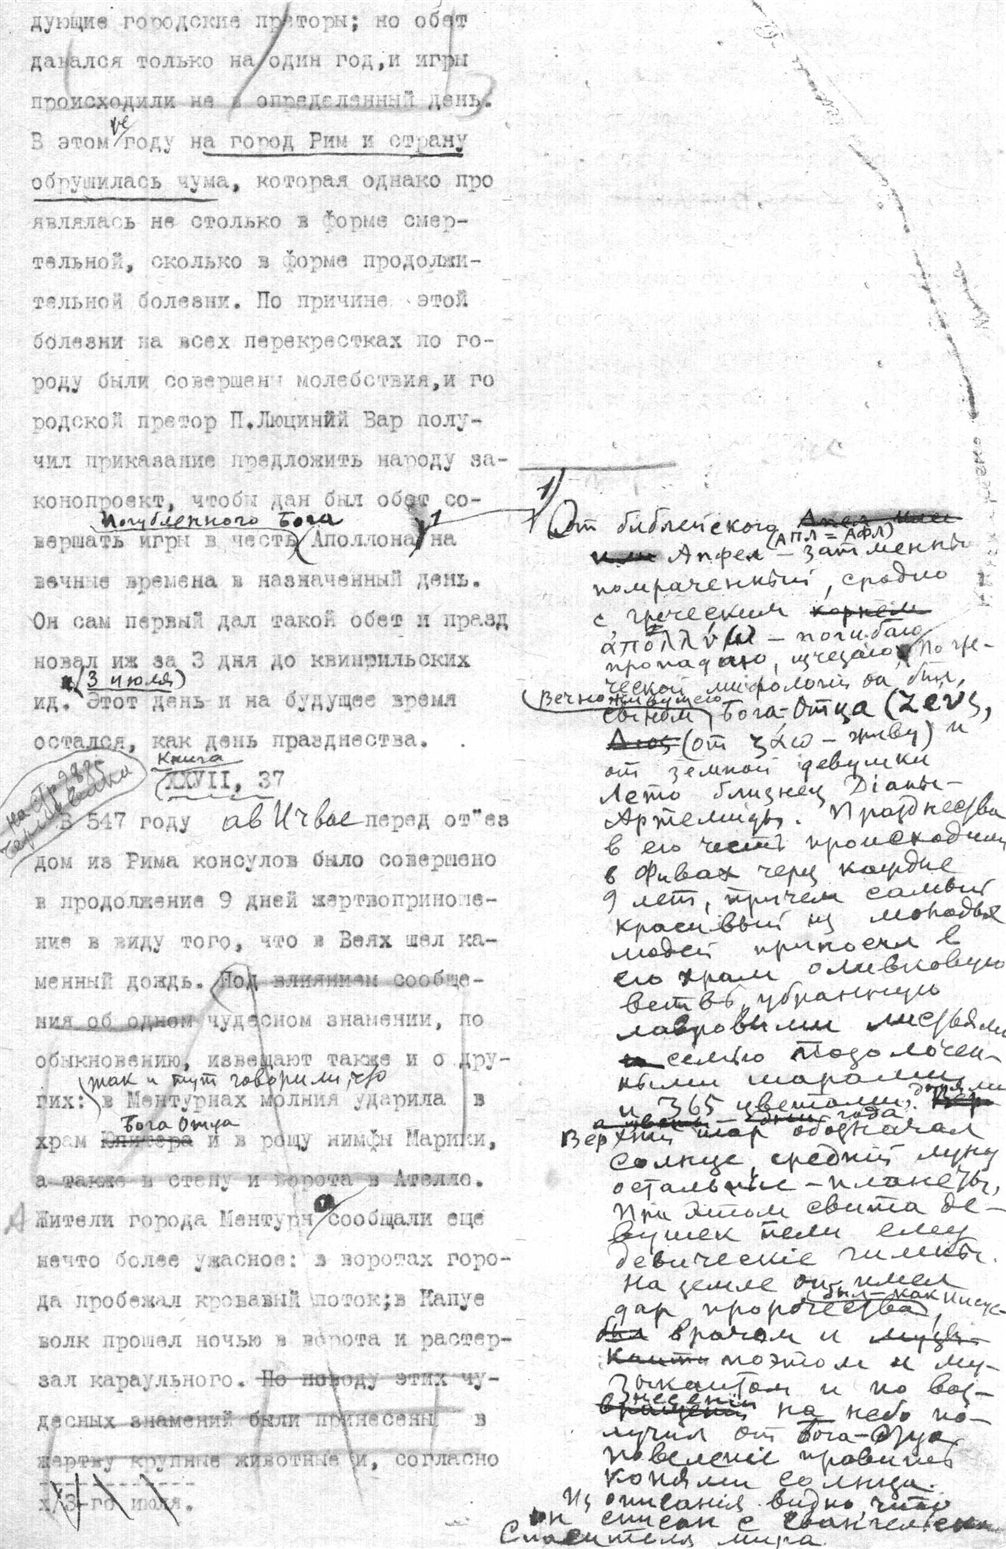 дующие городские преторы; но обет
давался только на один год,и игры
происходили не в определенный день.
В этом же году на город Рим и страну
обрушилась чума, которая однако про
являлась не столько в форме смер-
тельной, сколько в форме продолжи-
тельной болезни. По причине этой
болезни на всех перекрестках по го-
роду были совершены молебствия,и го
родской претор П.Люциний Вар полу-
чил приказание предложить народу за-
конопроект, чтобы дан был обет со-
Погубленного Бога
вершать игры в честь (Аполлона)1 на
вечные времена в назначенный день.
Он сам первый дал такой обет и празд
новал их за 3 дня до квинтильских
(3 июля)
ид. Этот день и на будущее время
остался, как день празднества.
Книга
XXVII, 37
В 547 году ав Ичвое перед от"ез
дом из Рима консулов было совершено
в продолжение 9 дней жертвоприноше-
ние в виду того, что в Веях шел ка-
менный дождь. Под влиянием сообще-
ния об одном чудесном знамении, по
обыкновению, извещают также и о дру-
так и тут говорили, что
гих: в Ментурнах молния ударила в
Бога Отца
храм Юпитера и в рощу нимфы Марики,
а также в стену и ворота в Ателле.
Жители города Ментурн сообщали еще
нечто более ужасное: в воротах горо-
да пробежал кровавый поток;в Капуе
волк прошел ночью в ворота и растер-
зал караульного. По поводу этих чу-
десных знамений были принесены в
жертву крупные животные и, согласно
х/3-го июля.
1) От библейского
(АПЛ = АФЛ)
или Апфел – затменный
помраченный, сродно
с греческим корнем
ἀπολλύω – погибаю
пропадаю, исчезаю. По гре-
ческой мифологии он был
Вечноживущего
сыном Бога-Отца (Ζευς,
Διος (от ζάω – живу) и
от земной девушки
Лето близнец Дианы-
Артемиды. Празднества
в его честь происходили
в Фивах через каждые
9 лет, причем самый
красивый из молодых
людей приносил в
его храм оливковую
ветвь, убранную
лавровыми листьями
и семью позолочен-
ными шарами
и 365 цветами,
дни года
Верхний шар обозначал
солнце, средний луну
остальные – планеты,
При этом свита де-
вушек пели ему
девические гимны.
На земле он имел
дар пророчества,
был врачом и
поэтом и му-
зыкантом и по воз-
несении
на небо по-
лучил от Бога-Отца
повеление править
конями солнца.
Из описания видно что
он списан с евангельского
Спасителя мира